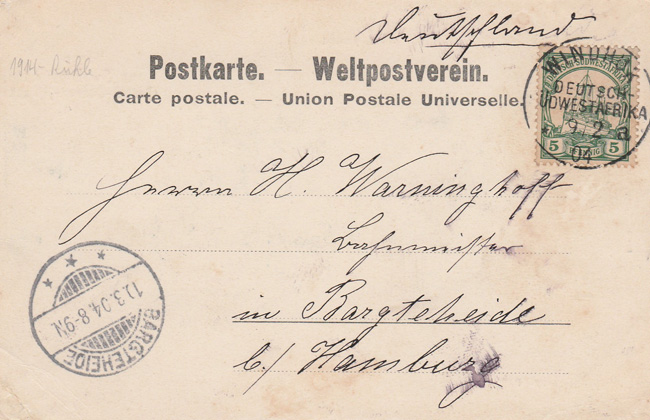 Deutschland
1904-Ruhle
Postkarte. — Weltpostverein.
Carte postale. — Union Postale Universelle.
WINDHUK
DEUTSCH-
SÜDWESTAFRIKA
9/2 a
04
5 PFENNIG 5
Herrn H. Warninghoff
Bahnmeister
in Bargteheide
b./ Hamburg
11.3.04.8-9N.
BARGTEHEIDE